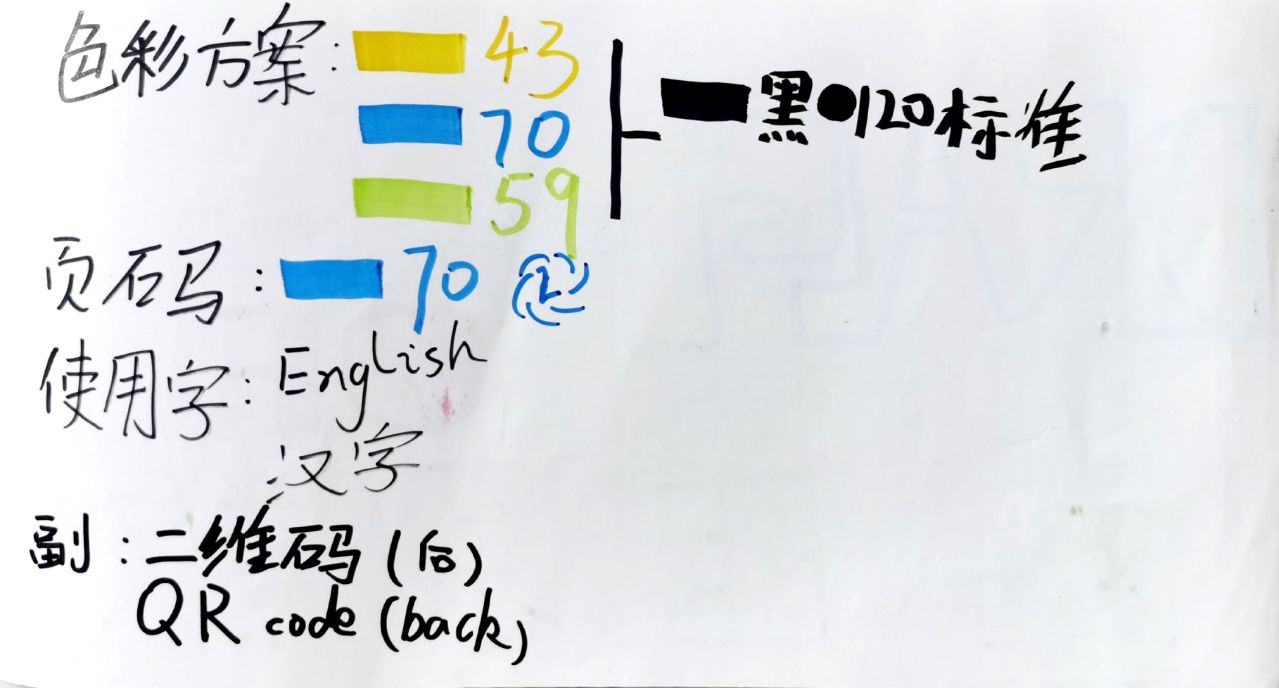 色彩方案: 43
70
59
黑●120标准
页码: 70 1
使用字: English
汉字
副: 二维码(后)
QR code (back)